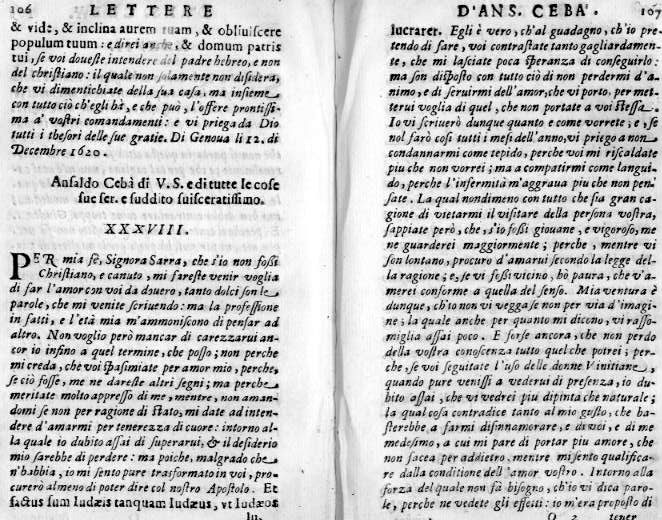 106 LETTERE
& vide, & inclina aurem tuam, & obliuiscere
populum tuum: e direi anche, & domum patris
tui, se voi doueste intendere del padre hebreo, e non
del christiano: il quale non solamente non disidera,
che vi dimentichiate della sua casa, ma insieme
con tutto ciò ch'egli hà, e che può, l'offere prontissi-
ma a' vostri comandamenti: e vi priega da Dio
tutti i thesori delle sue gratie. Di Genoua li 12. di
Decembre 1620.
Ansaldo Cebà di V. S. e di tutte le cose
sue ser. e suddito suisceratissimo.
XXXVIII.
PER mia fè, Signora Sarra, che s'io non fossi
Christiano, e canuto, mi fareste venir voglia
di far l'amor con voi da douero, tanto dolci son le
parole, che mi venite scriuendo: ma la professione
in fatti, e l'età mia m'ammoniscono di pensar ad
altro. Non voglio però mancar di carezzarui an-
cor io infino a quel termine, che posso; non perche
mi creda, che voi spasimiate per amor mio, perche,
se ciò fosse, me ne dareste altri segni; ma perche
meritate molto appresso di me, mentre, non aman-
domi se non per ragione di stato, mi date ad inten-
dere d'amarmi per tenerezza di cuore: intorno al-
la quale io dubito assai di superarui, & il desiderio
mio sarebbe di perdere: ma poiche, malgrado che
n'habbia, io mi sento pure trasformato in voi, pro-
curerò almeno di poter dire col nostro Apostolo. Et
factus sum Iudæis tanquam Iudæus, vt Iudæos
lu-
D'ANS. CEBA'. 107
lucrarer. Egli è vero, ch'al guadagno, ch'io pre-
tendo di fare, voi contrastate tanto gagliardamen-
te, che mi lasciate poca speranza di conseguirlo:
ma son disposto con tutto ciò di non perdermi d'a-
nimo, e di seruirmi dell'amor, che vi porto, per met-
terui voglia di quel, che non portate a voi stessa.
Io vi scriuerò dunque quanto e come vorrete; e, se
nol farò così tutti i mesi dell'anno, vi priego a non
condannarmi come tepido, perche voi mi riscaldate
piu che non vorrei; ma a compatirmi come langui-
do, perche l'infermità m'aggraua piu che non pen-
sate. La qual nondimeno con tutto che sia gran ca-
gione di vietarmi il visitare della persona vostra,
sappiate però, che, s'io fossi giouane, e vigoroso, me
ne guarderei maggiormente; perche, mentre vi
son lontano, procuro d'amarui secondo la legge del-
la ragione; e, se vi fossi vicino, hò paura, che v'a-
merei conforme a quella del senso. Mia ventura è
dunque, ch'io non vi vegga se non per via d'imagi-
ne; la quale anche per quanto mi dicono, vi rasso-
miglia assai poco. E forse ancora, che non perdo
della vostra conoscenza tutto quel che potrei; per-
che, se voi seguitate l'uso delle donne Vinitiane,
quando pure venissi a vederui di presenza, io du-
bito assai, che vi vedrei piu dipinta che naturale;
la qual cosa contradice tanto al mio gusto, che ba-
sterebbe a farmi disinnamorare, e di voi, e di me
medesimo, a cui mi pare di portar piu amore, che
non facea per addietro, mentre mi sento qualifica-
re dalla conditione dell'amor vostro. Intorno alla
forza del quale non fà bisogno, ch'io vi dica paro-
le, perche ne vedete gli effetti: io m'era proposto di
O 2 tener